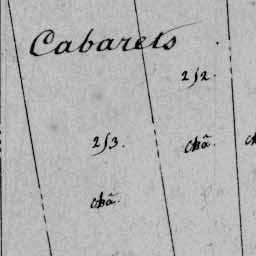 Cabarets
252.
253.
chã.
chã.